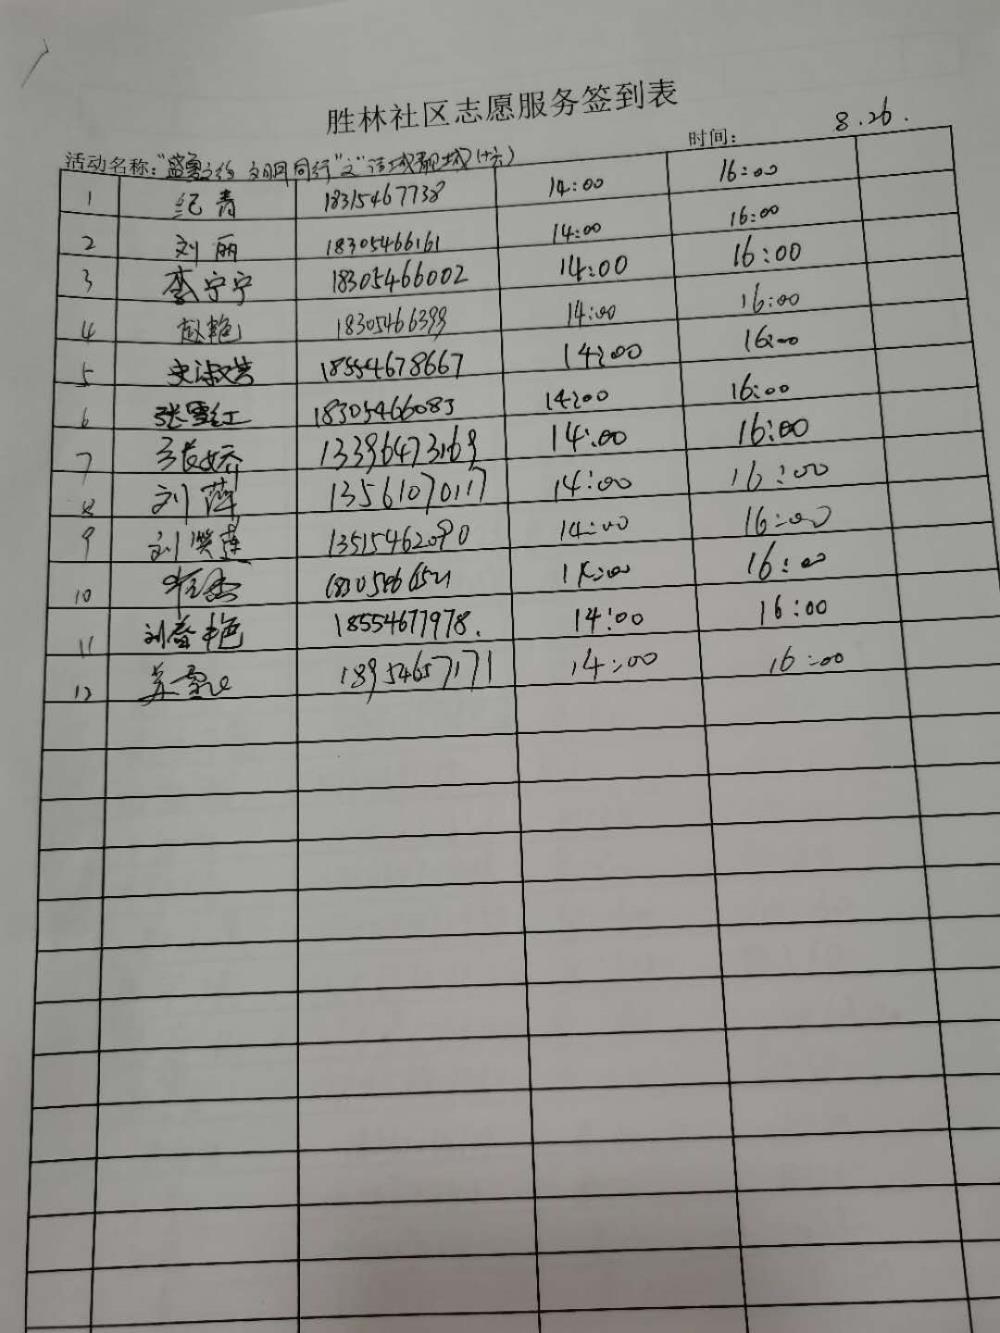 胜林社区志愿服务签到表
活动名称："盛夏之约 文明同行"之"清城靓城(十六) 时间: 8.26.
1 纪青 18315467738 14:00 16:00
2 刘丽 18305466161 14:00 16:00
3 李宁宁 18305466002 14:00 16:00
4 赵艳 18305466399 14:00 16:00
5 18554678667 14:00 16:00
6 张雪红 18305466083 14:00 16:00
7 张娇 13396473169 14:00 16:00
8 刘萍 13561070117 14:00 16:00
9 刘 莲 13515462090 14:00 16:00
10 14:00 16:00
11 刘春艳 18554677978. 14:00 16:00
12 18954657171 14:00 16:00